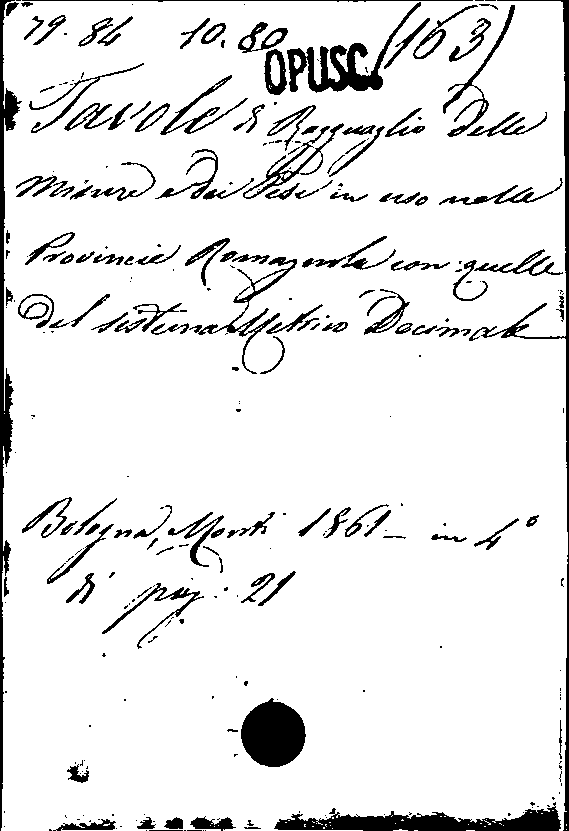 79. 84 10. 80 OPUSC. (163)
Tavole di Ragguaglio delle
Misure e dei Pesi in uso nelle
Provincie Romagnola con quelle
del sistema Metrico Decimale
Bologna, Monti 1861 - in 4º
di pag. 21